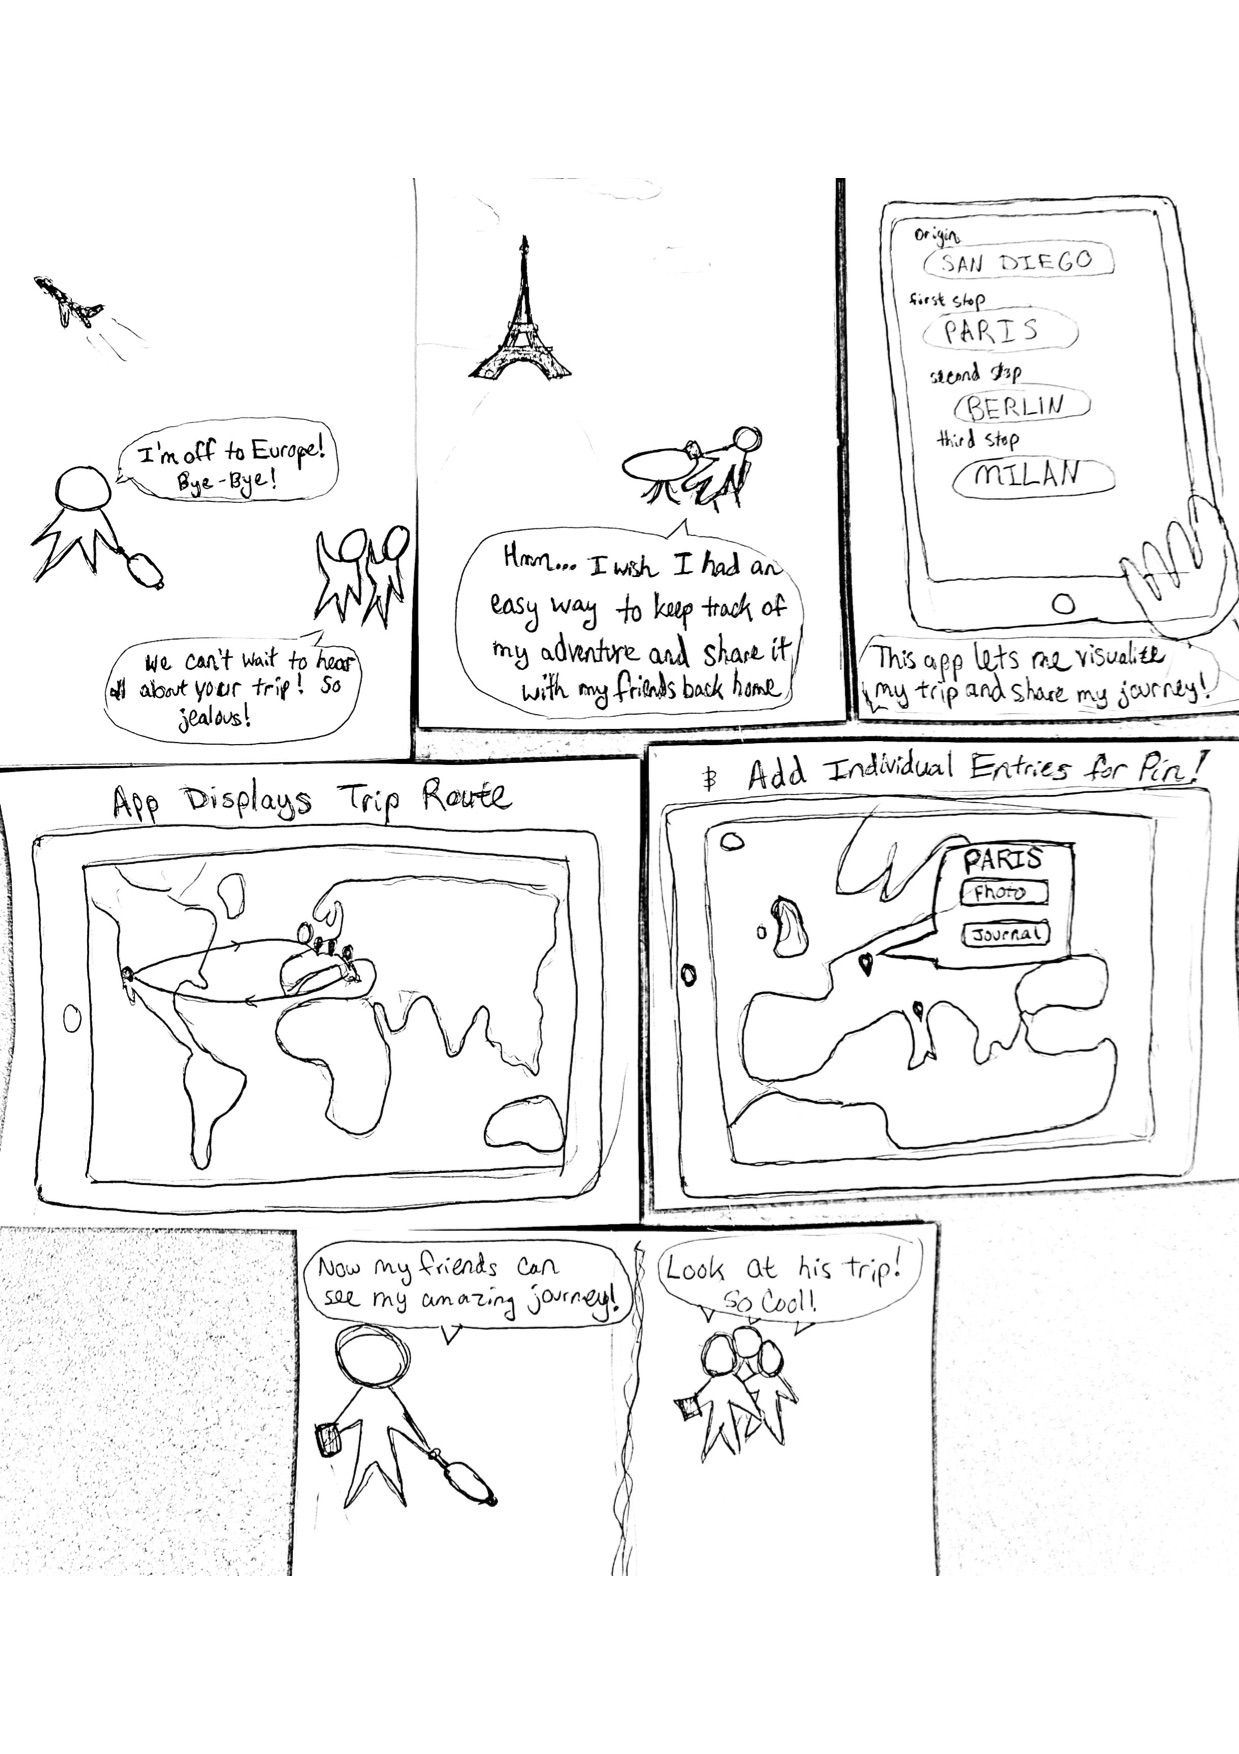 I'm off to Europe!
Bye-Bye!
We can't wait to hear
all about your trip! So
jealous!
Hmm... I wish I had an
easy way to keep track of
my adventure and share it
with my friends back home
origin
SAN DIEGO
first stop
PARIS
second stop
BERLIN
third stop
MILAN
This app lets me visualize
my trip and share my journey!
App Displays Trip Route
& Add Individual Entries for Pin!
PARIS
Photo
Journal
Now my friends can
see my amazing journey!
Look at his trip!
So Cool!